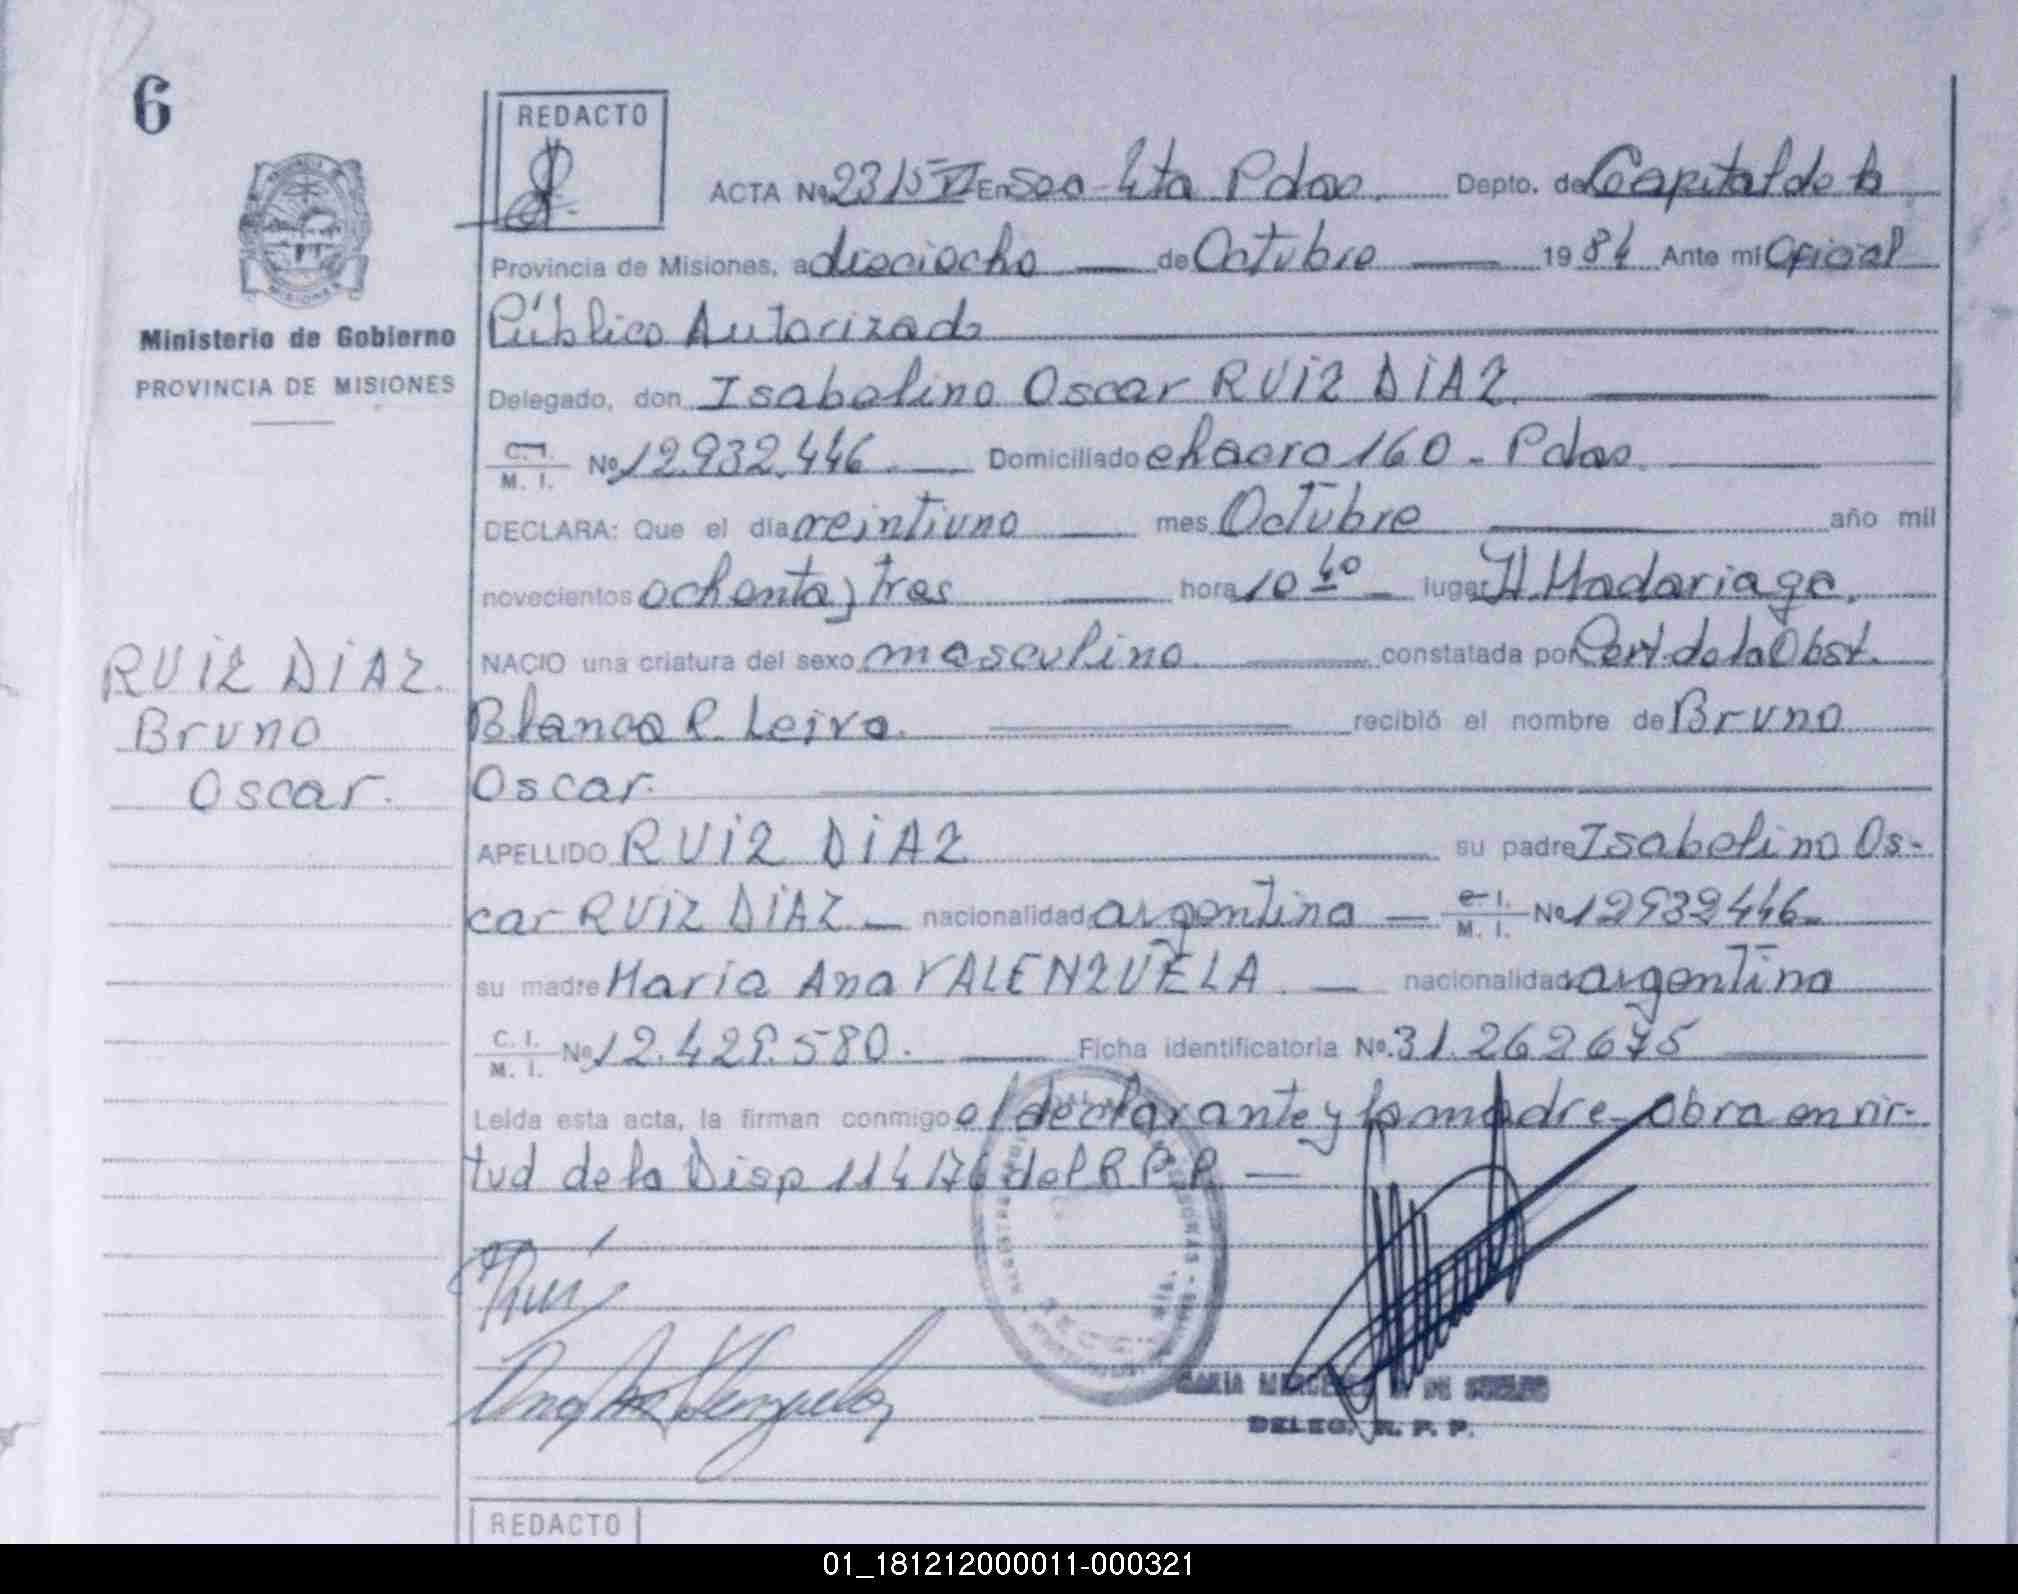 6
REDACTO
ACTA No 2315 VI En Sec 4ta Pdas. Depto. de Capital de la
Provincia de Misiones, a dieciocho de Octubre 1984 Ante mi Oficial
Público Autorizado
Ministerio de Gobierno
PROVINCIA DE MISIONES
Delegado, don Isabelino Oscar RUIZ DIAZ
C.I.
M. I. No 12.932.446 Domiciliado chacra 160 - Pdas.
DECLARA: Que el día veintiuno mes Octubre año mil
novecientos ochenta y tres hora 10 40 lugar H. Madariaga.
RUIZ DIAZ.
Bruno
Oscar.
NACIO una criatura del sexo masculino constatada por Cert. de la Obst.
Blanca R. Leiva. recibió el nombre de Bruno
Oscar.
APELLIDO RUIZ DIAZ su padre Isabelino Os-
car RUIZ DIAZ nacionalidad argentina C.I. M. I. No 12932446
su madre Maria Ana VALENZUELA. nacionalidad argentina
C. I.
M. I. No 12.429.580. Ficha identificatoria No. 31.262675
Leida esta acta, la firman conmigo el declarante y la madre - Obra en vir-
tud de la Disp 114/76 del R.P.P.
MARIA MERCEDES DE
DELEG. R. P. P.
REDACTO
01_181212000011-000321